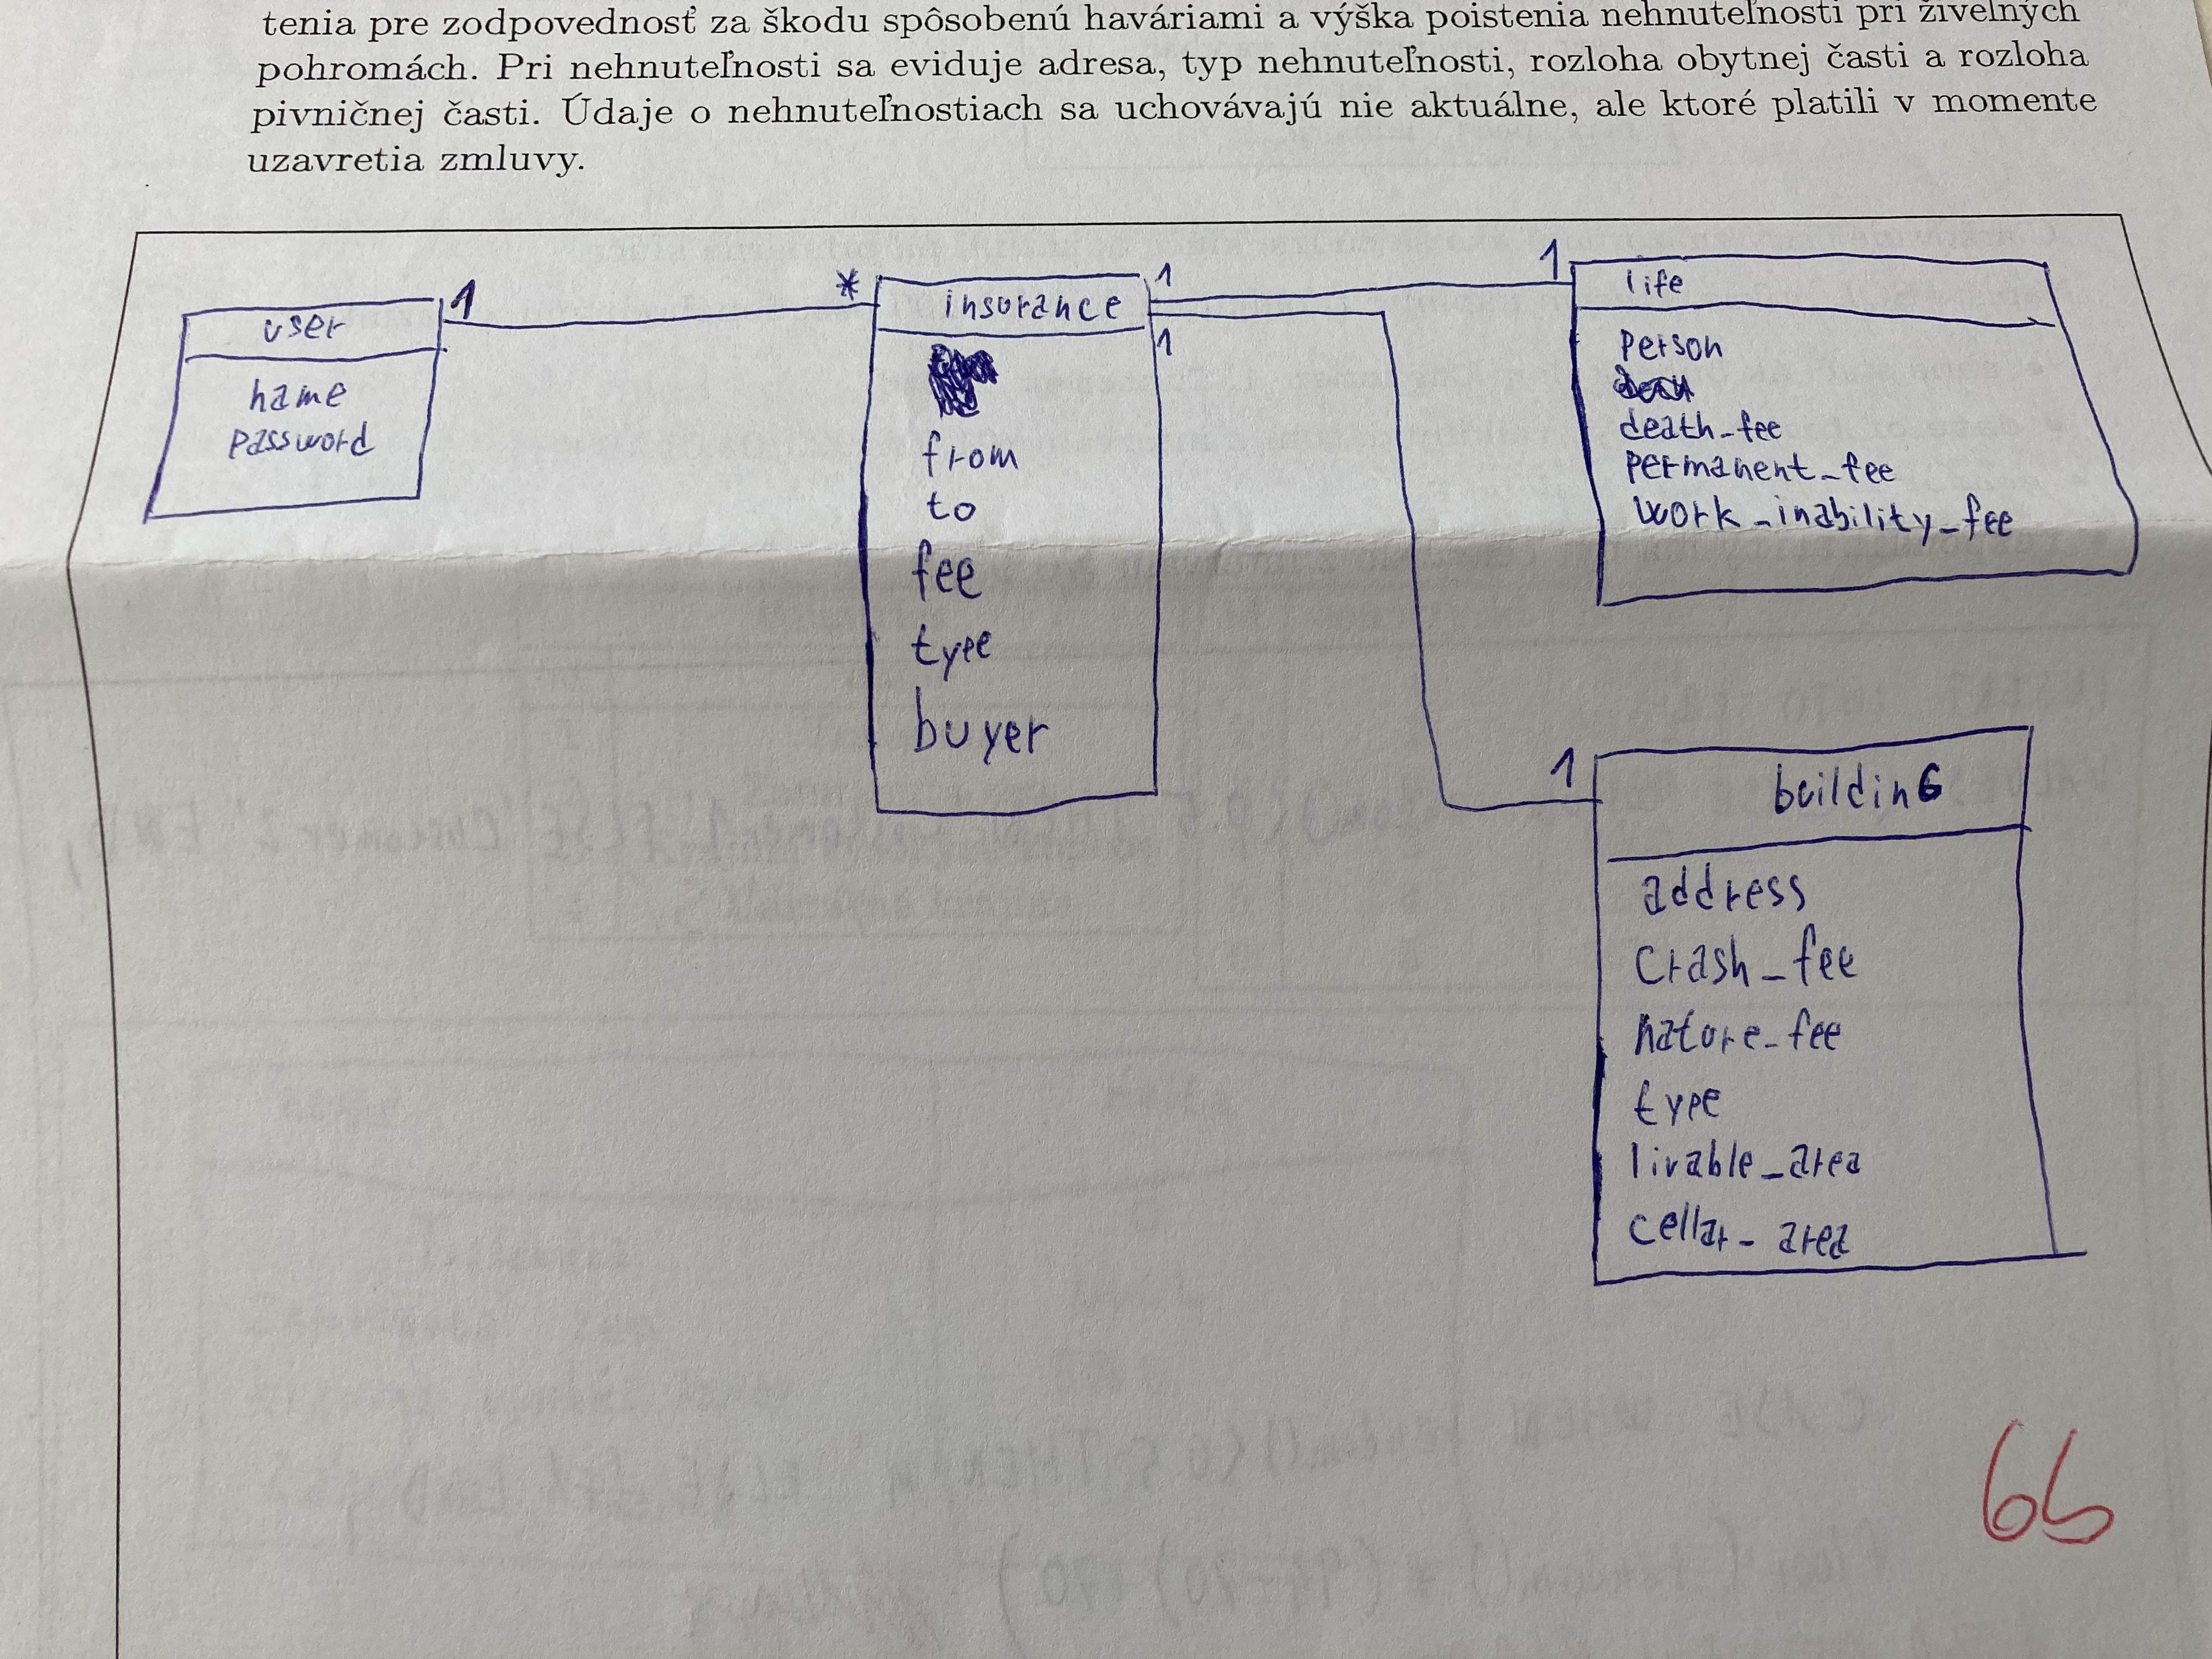 tenia pre zodpovednosť za škodu spôsobenú haváriami a výška poistenia nehnuteľnosti pri živelných
pohromách. Pri nehnuteľnosti sa eviduje adresa, typ nehnuteľnosti, rozloha obytnej časti a rozloha
pivničnej časti. Údaje o nehnuteľnostiach sa uchovávajú nie aktuálne, ale ktoré platili v momente
uzavretia zmluvy.
user
name
password
1
*
insurance
from
to
fee
type
buyer
1
1
1
life
person
death_fee
permanent_fee
work_inability_fee
1
building
address
crash_fee
nature_fee
type
livable_area
cellar_area